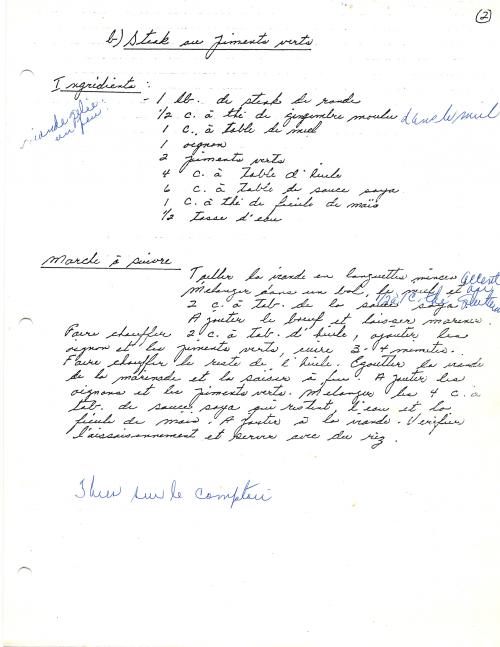 (2)
b) Steak au piments verts
Ingrédients :
- 1 lb. de steak de ronde
1/2 c. à thé de gingembre moulu dans le miel
1 c. à table de miel
1 oignon
2 piments verts
4 c. à table d'huile
6 c. à table de sauce soya
1 c. à thé de fécule de maïs
1/2 tasse d'eau
Marche à suivre
Tailler la viande en languettes minces
Mélanger dans un bol, le miel et
2 c. à tab. de la sauce soya
Ajouter le boeuf et laisser mariner.
Faire chauffer 2 c. à tab. d'huile, ajouter les
oignon et les piments verts, cuire 3-4 minutes.
Faire chauffer le reste de l'huile. Egoutter la viande
de la marinade et la saisir à feu. Ajouter les
oignons et les piments verts. Mélanger les 4 c. à
tab. de sauce soya qui restent, l'eau et la
fécule de maïs. Ajouter à la viande. Vérifier
l'assaisonnement et servir avec du riz.
sur le comptoir